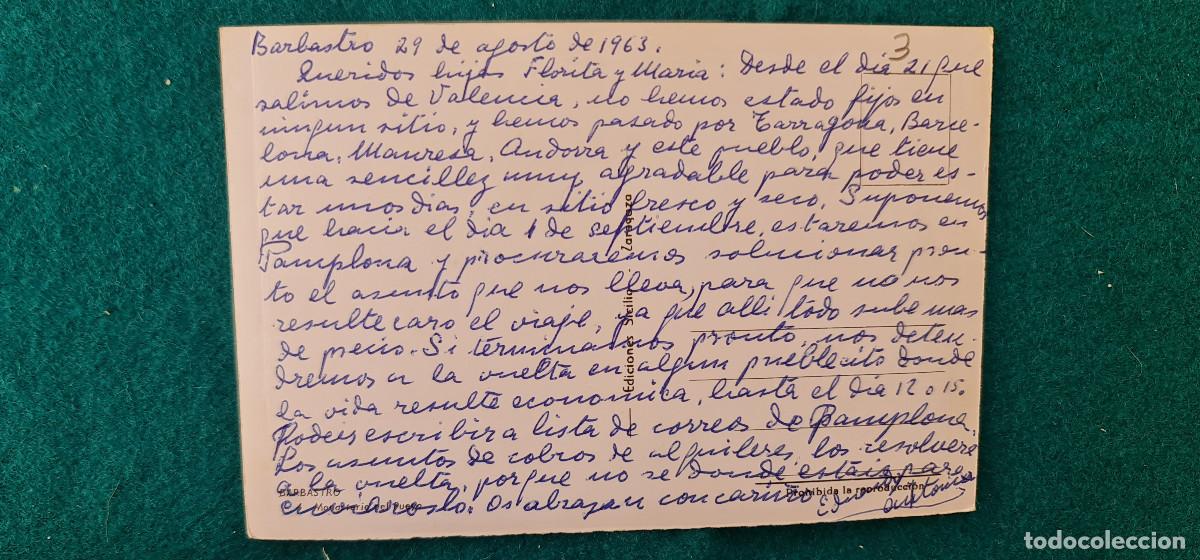 Barbastro 29 de agosto de 1963.
3
Queridos hijos Florita y Maria: Desde el día 21 que
salimos de Valencia, no hemos estado fijos en
ningun sitio, y hemos pasado por Tarragona, Barce-
lona, Manresa, Andorra y este pueblo, que tiene
una sencillez muy agradable para poder es-
tar unos dias, en sitio fresco y seco. Suponemos
que hacia el dia 1 de septiembre, estaremos en
Pamplona y procuraremos solucionar pron-
to el asunto que nos lleva, para que no nos
resulte caro el viaje, ya que alli todo sube mas
de precio. Si terminamos pronto, nos deten-
dremos a la vuelta en algun pueblecito donde
la vida resulte economica, hasta el dia 12 o 15.
Podeis escribir a lista de correos de Pamplona.
Los asuntos de cobros de alquileres, los resolvere
a la vuelta, porque no se donde estais para
enviaroslo. Os abrazan con cariño
Antonia
Ediciones Sicilia Zaragoza
BARBASTRO
Prohibida la reproducción
todocoleccion